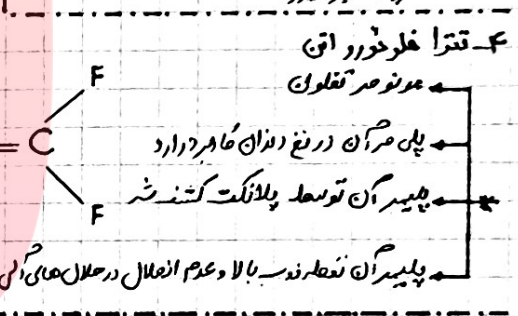 ۴- تترا فلوئورو اتن
مونومر تفلون
پلی مر آن در نخ دندان کاربرد دارد
پلیمر آن توسط پلانکت کشف شد
پلیمر آن نقطه ذوب بالا و عدم انحلال در حلال های آلی
F
= C
F